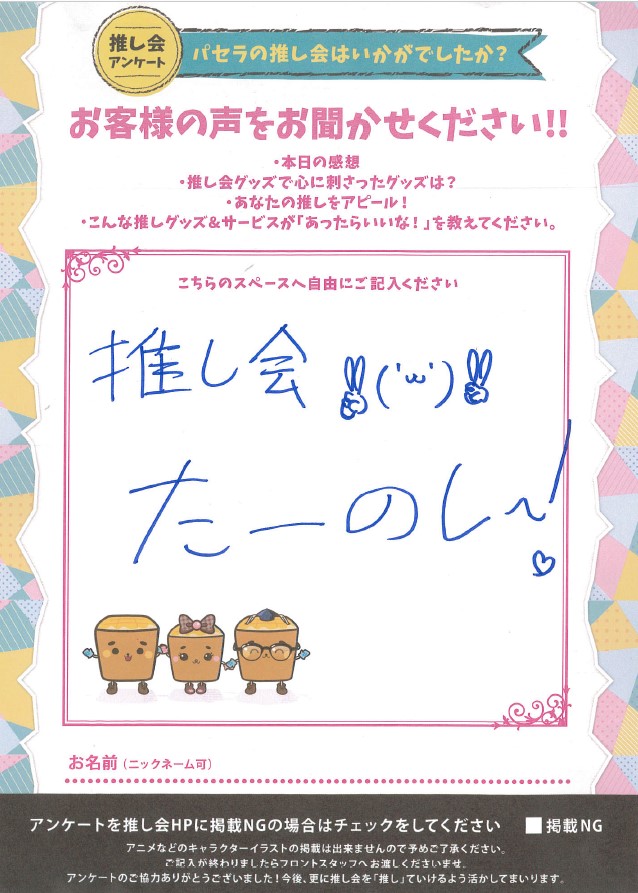 推し会
アンケート
パセラの推し会はいかがでしたか？
お客様の声をお聞かせください!!
・本日の感想
・推し会グッズで心に刺さったグッズは？
・あなたの推しをアピール！
・こんな推しグッズ&サービスが「あったらいいな！」を教えてください。
こちらのスペースへ自由にご記入ください
推し会 ✌('ω')✌
たーのし〜！♡
お名前（ニックネーム可）
アンケートを推し会HPに掲載NGの場合はチェックをしてください ■掲載NG
アニメなどのキャラクターイラストの掲載は出来ませんので予めご了承ください。
ご記入が終わりましたらフロントスタッフへお渡しくださいませ。
アンケートのご協力ありがとうございました！今後、更に推し会を「推し」ていけるよう活かしてまいります。